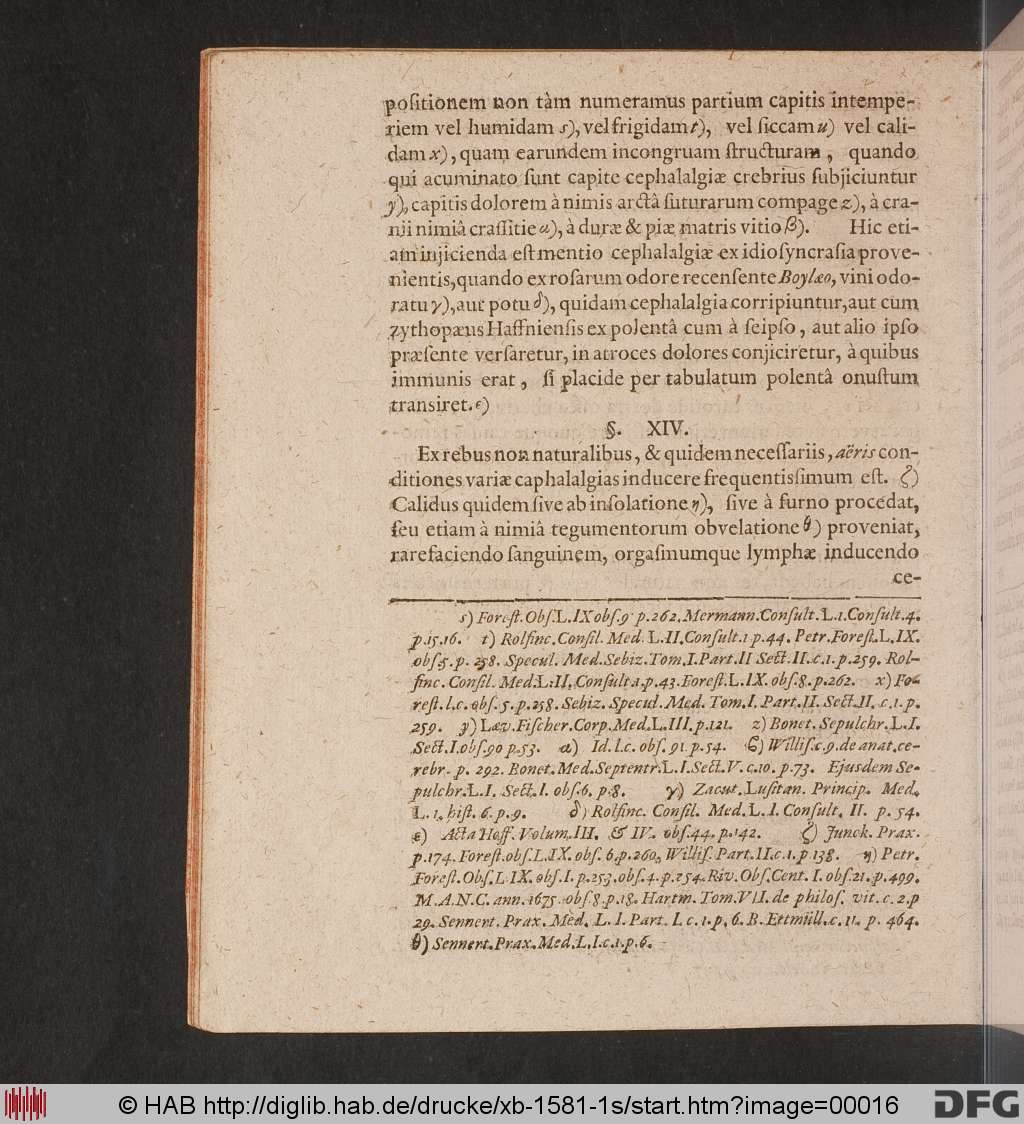 poſitionem non tàm numeramus partium capitis intempe-
riem vel humidam s), vel frigidam t), vel ſiccam u) vel cali-
dam x), quam earundem incongruam ſtructuram, quando
qui acuminato ſunt capite cephalalgiæ crebrius ſubjiciuntur
y), capitis dolorem à nimis arctâ ſuturarum compage z), à cra-
nii nimiâ craſſitie α), à duræ & piæ matris vitio β). Hic eti-
am injicienda eſt mentio cephalalgiæ ex idioſyncraſia prove-
nientis, quando ex roſarum odore recenſente Boylæo, vini odo-
ratu γ), aut potu δ), quidam cephalalgia corripiuntur, aut cum
zythopæus Haffnienſis ex polentâ cum à ſeipſo, aut alio ipſo
præſente verſaretur, in atroces dolores conjiciretur, à quibus
immunis erat, ſi placide per tabulatum polentâ onuſtum
transiret. ε)
§. XIV.
Ex rebus non naturalibus, & quidem neceſſariis, aëris con-
ditiones variæ caphalalgias inducere frequentisſimum eſt. ζ)
Calidus quidem ſive ab inſolatione η), ſive à furno procedat,
ſeu etiam à nimiâ tegumentorum obvelatione θ) proveniat,
rarefaciendo ſanguinem, orgaſmumque lymphæ inducendo
ce-
s) Foreſt. Obſ. L. IX obſ. 9 p. 262. Mermann. Conſult. L. 1. Conſult. 4.
p. 15. 16. t) Rolfinc. Conſil. Med. L. II. Conſult. 1 p. 44. Petr. Foreſt. L. IX.
obſ. 5. p. 258. Specul. Med. Sebiz. Tom. I. Part. II Sect. II. c. 1. p. 259. Rol-
finc. Conſil. Med. L. II. Conſult 1. p. 43. Foreſt. L. IX. obſ. 8. p. 262. x) Fo-
reſt. l. c. obſ. 5. p. 258. Sebiz. Specul. Med. Tom. I. Part. II. Sect. II. c. 1. p.
259. y) Læv. Fiſcher. Corp. Med. L. III. p. 121. z) Bonet. Sepulchr. L. I.
Sect. I. obſ. 90 p. 53. α) Id. l. c. obſ. 91 p. 54. ϐ) Willis. c. 9. de anat. ce-
rebr. p. 292. Bonet. Med. Septentr. L. I. Sect. V. c. 10. p. 73. Ejusdem Se-
pulchr. L. I. Sect. I. obſ. 6. p. 8. γ) Zacut. Luſitan. Princip. Med.
L. 1. hiſt. 6. p. 9. δ) Rolfinc. Conſil. Med. L. I. Conſult. II. p. 54.
ε) Acta Haff. Volum. III. & IV. obſ. 44. p. 142. ζ) Junck. Prax.
p. 174. Foreſt. obſ. L. IX. obſ. 6. p. 260. Willis. Part. II. c. 1. p 138. η) Petr.
Foreſt. Obſ. L IX. obſ. I. p. 253. obſ. 4. p. 254. Riv. Obſ. Cent. I. obſ. 21. p. 499.
M. A. N. C. ann. 1675. obſ. 8. p. 18. Hartm. Tom. VII. de philoſ. vit. c. 2. p
29. Sennert. Prax. Med. L. I. Part. I. c. 1. p. 6. B. Ettmüll. c. 11. p. 464.
θ) Sennert. Prax. Med. L. I. c. 1. p. 6.
© HAB http://diglib.hab.de/drucke/xb-1581-1s/start.htm?image=00016
DFG